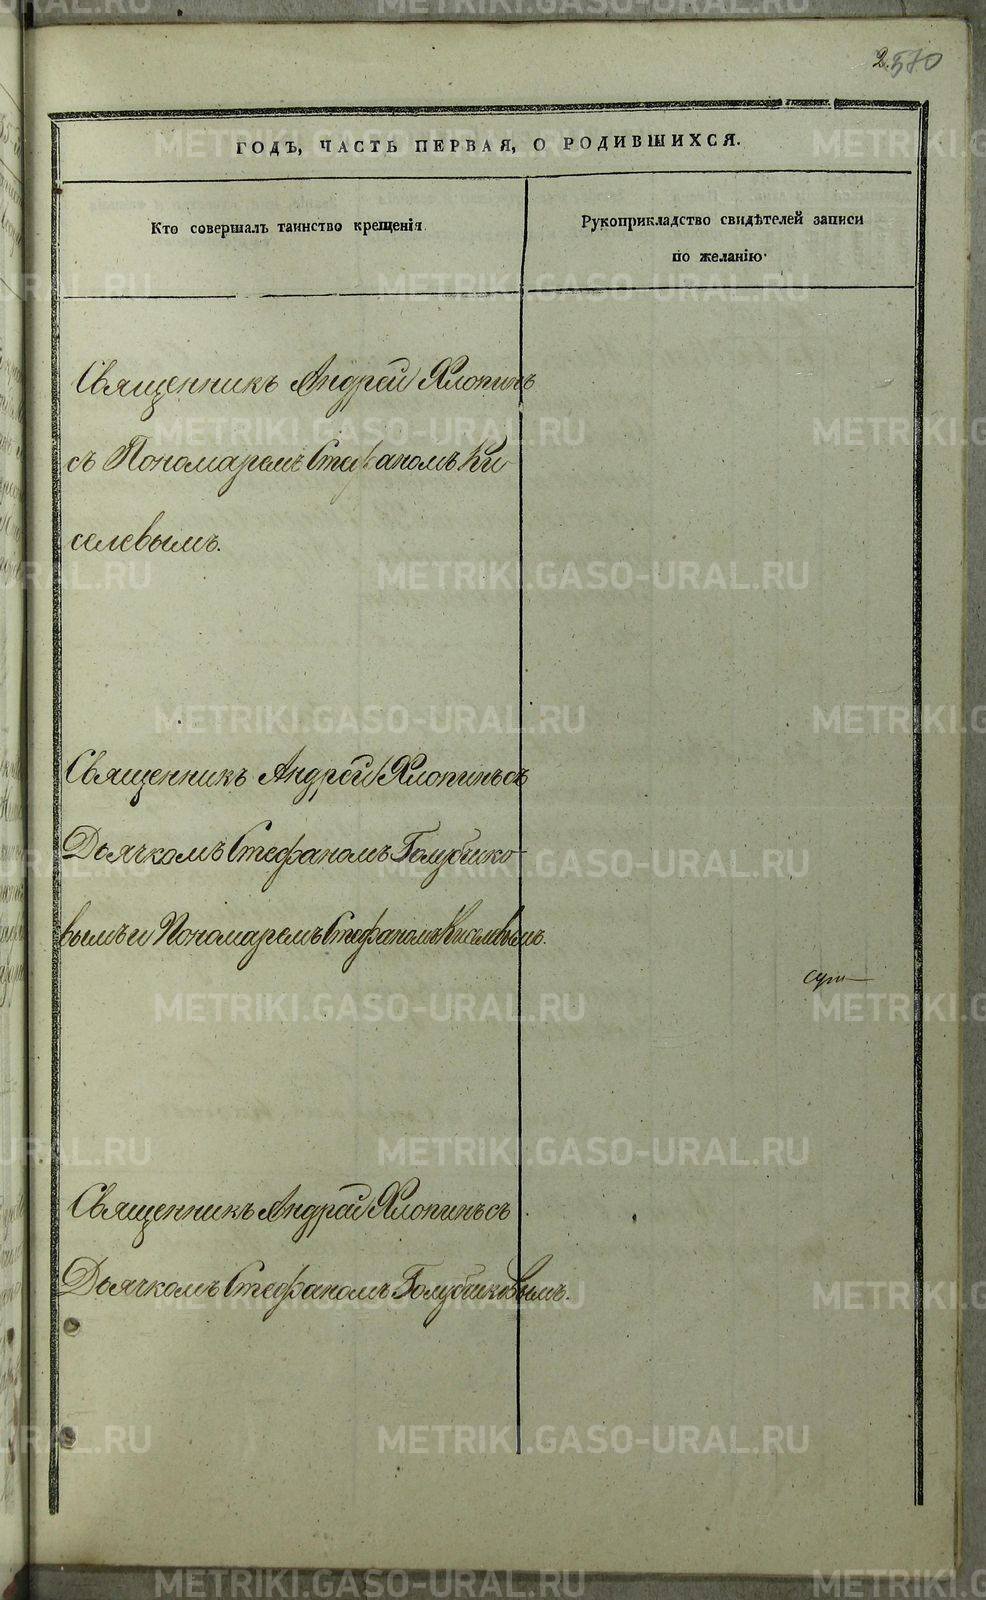 2. 570
ГОДЪ, ЧАСТЬ ПЕРВАЯ, О РОДИВШИХСЯ.
Кто совершалъ таинство крещенія.
Рукоприкладство свидѣтелей записи
по желанію.
Священникъ Андрей Хлопинъ
съ Пономаремъ Стефаномъ Ки-
селевымъ.
Священникъ Андрей Хлопинъ съ
Дьячкомъ Стефаномъ Голубчико-
вымъ и Пономаремъ Стефаномъ Киселевымъ.
Священникъ Андрей Хлопинъ съ
Дьячкомъ Стефаномъ Голубчиковымъ.
METRIKI.GASO-URAL.RU